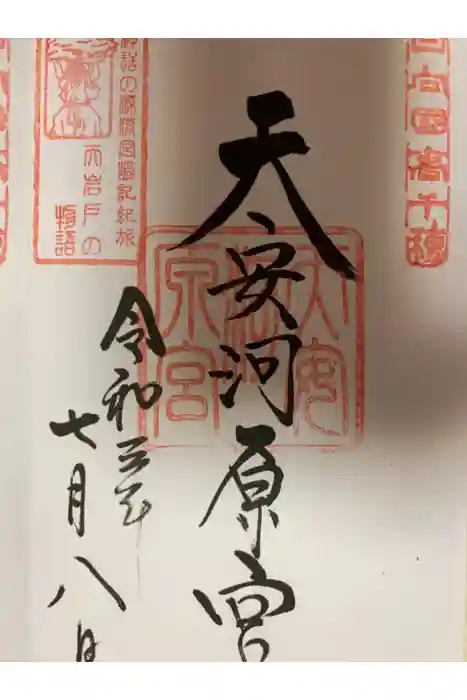 日向國高千穂
天安河原宮
天安河原宮
令和三年
七月八日
神話の源流宮崎記紀旅
天岩戸の
物語